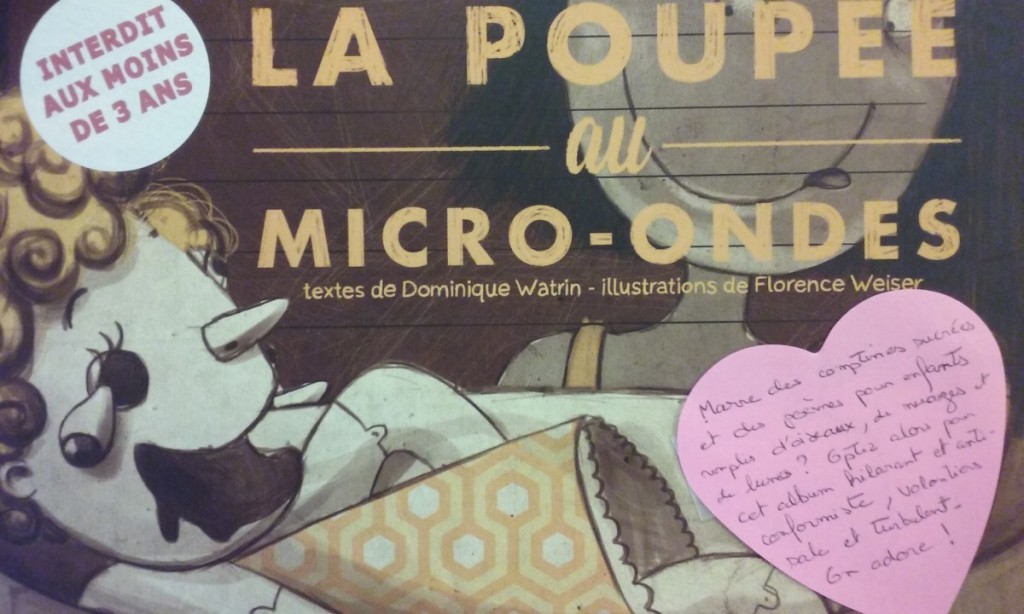 INTERDIT
AUX MOINS
DE 3 ANS
LA POUPÉE
au
MICRO-ONDES
textes de Dominique Watrin - illustrations de Florence Weiser
Marre des comptines sucrées
et des poèmes pour enfants
remplis d'oiseaux, de nuages et
de lunes ? Optez alors pour
cet album hilarant et anti-
conformiste, volontiers
sale et turbulent.
On adore !